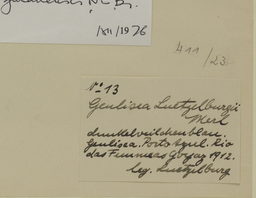 N. B.
/XII/1976
411/23
No 13
Genlisea Luetzelburgii
Merl
dunkelveilchenblau.
Genlisea. Porto Rio
das Goyaz 1912.
leg. Luetzelburg